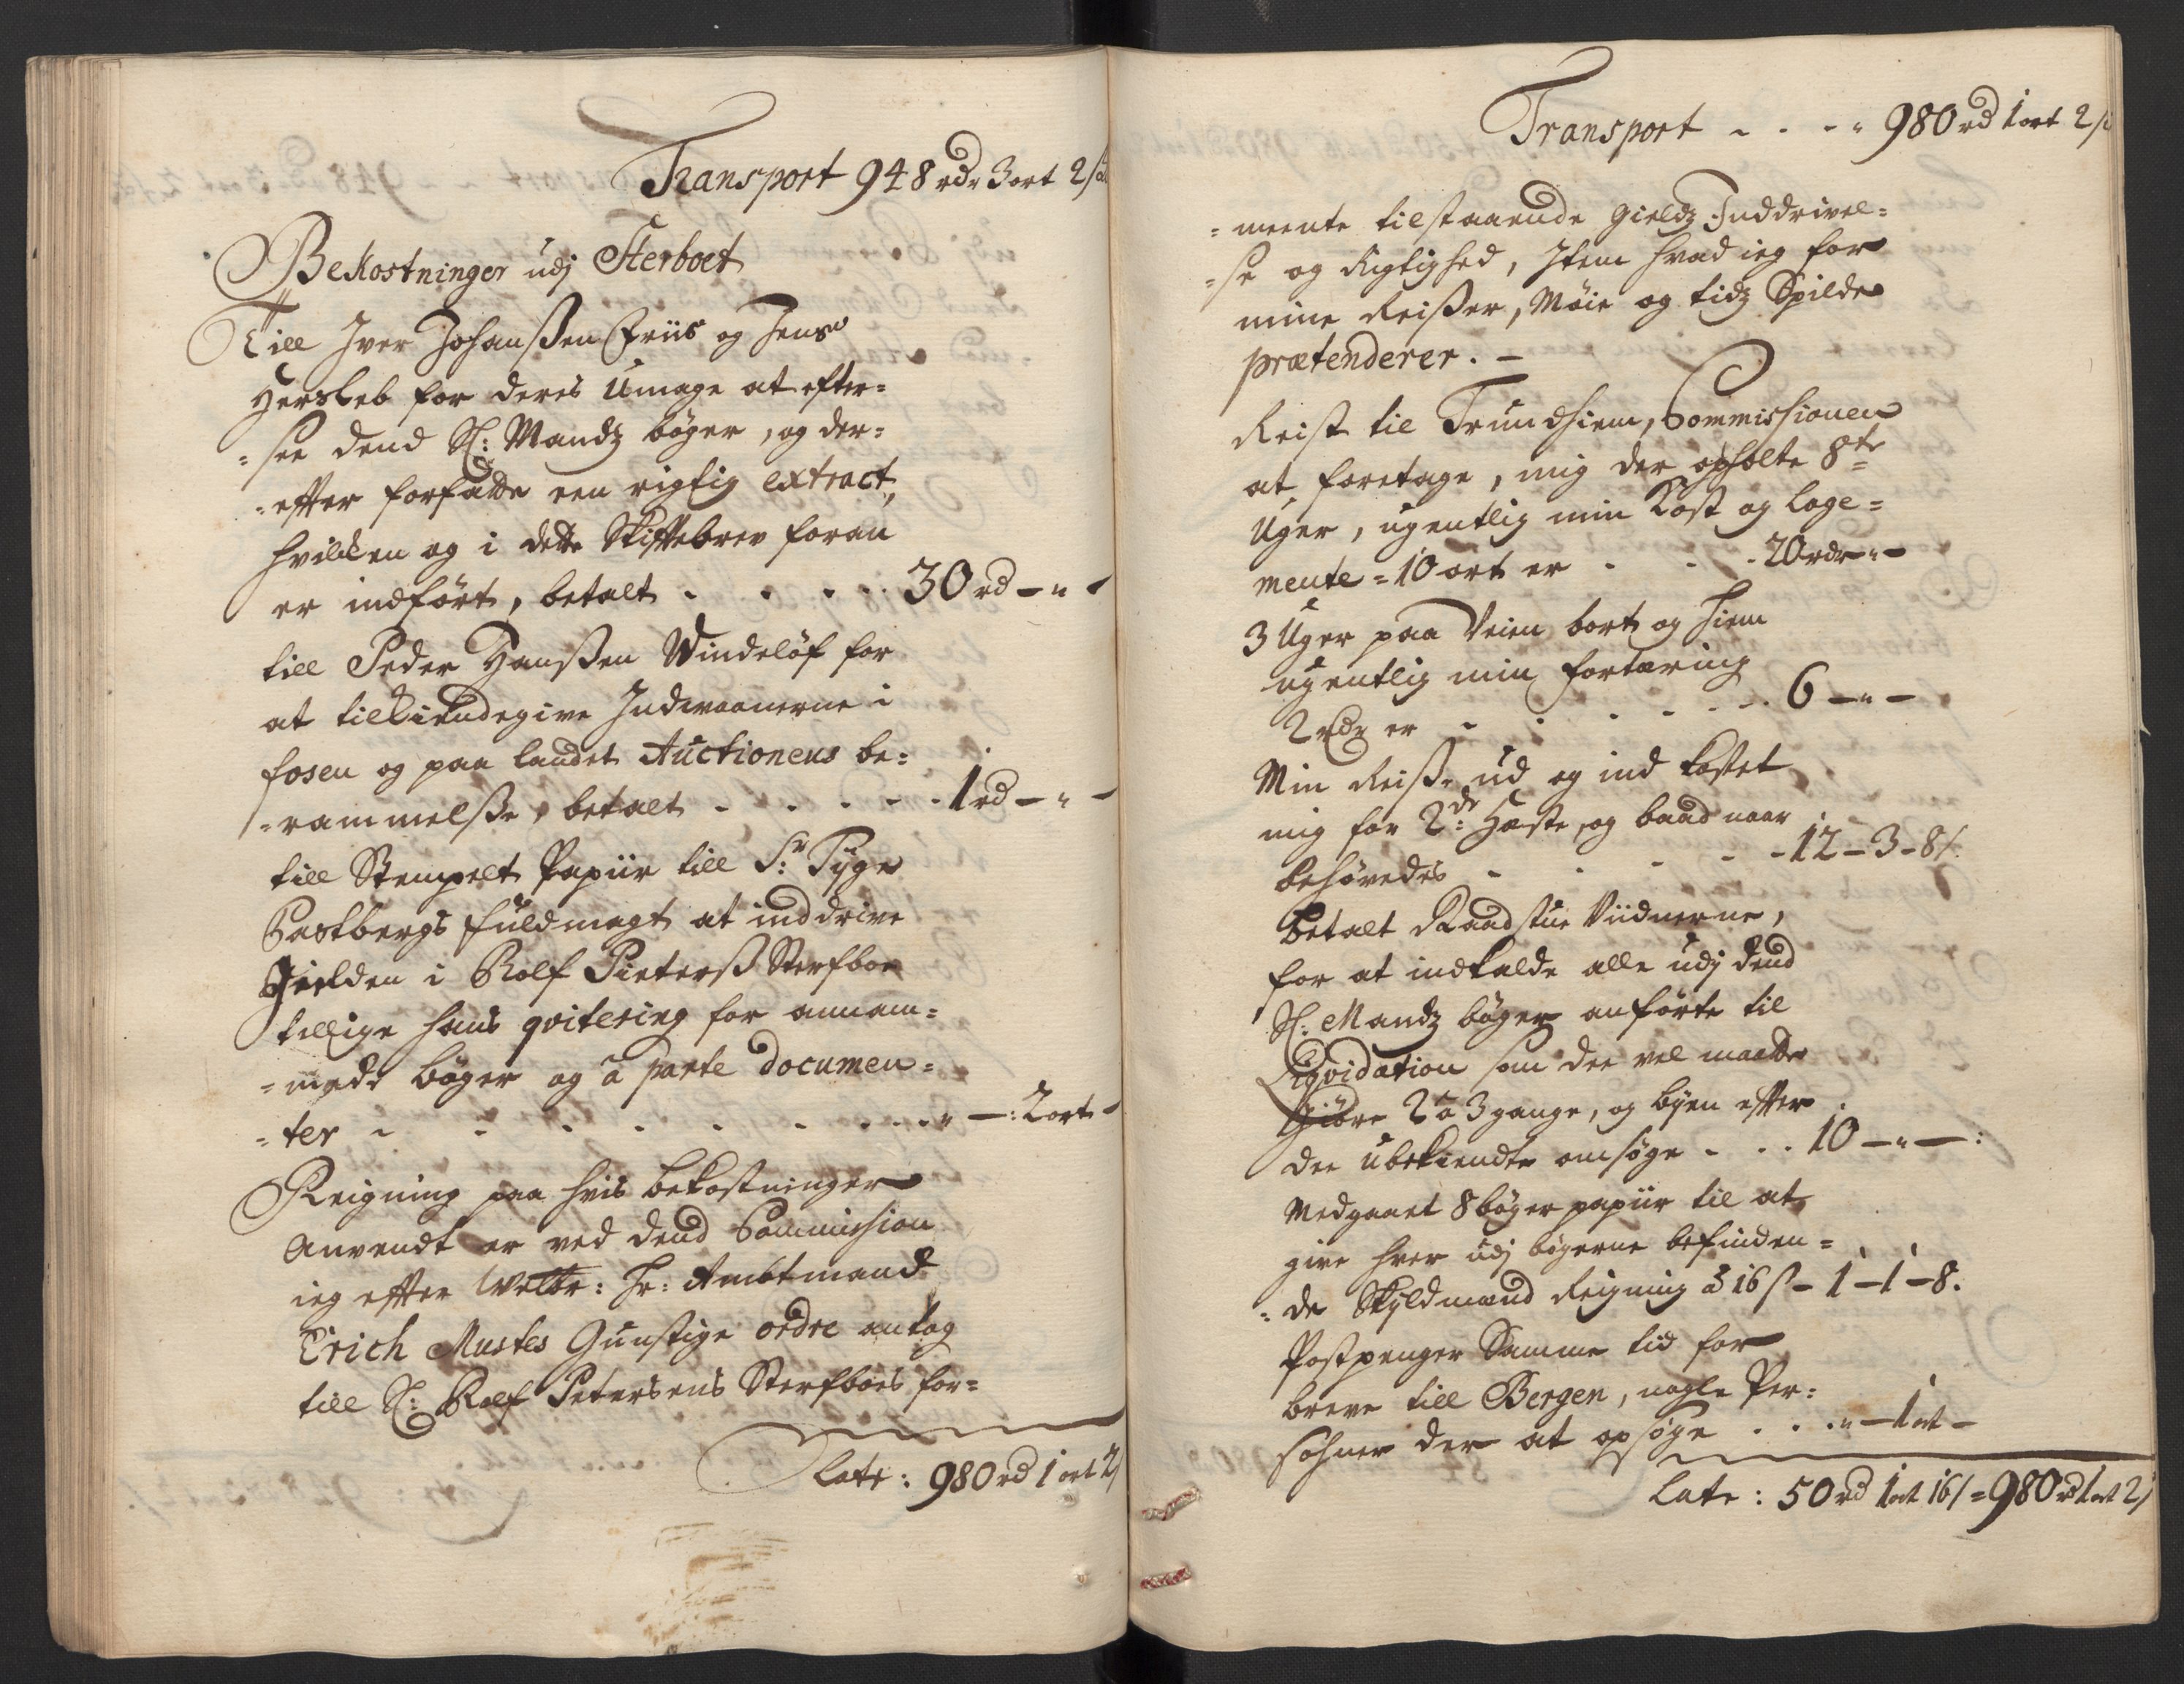 Transport 948 rdr 3 ort 2 ß
Bekostninger udj Sterboet
Till Jver Johanßen Friis og Jens
Hersleb for deris Umage at efter=
=see dend Sl: Mandz bøger, og der=
=effter forfatte een rigtig extract,
hvilken og i dette Skifftebrev foran
er indført, betalt . . . . . 30 rd – " –
till Peder Hanßen Windeløf for
at tilkiendegive Indvaanerne i
fosen og paa landet Auctionens be=
=rammelße, betalt - - - - - 1 rd – " –
till Stempelt Papiir till Sr: Tyge
Castbergs fuldmagt at inddrive
Gielden i Rolf Pieterß Sterfboe
tillige hans qvitering for annam=
=mede bøger og â parte documen=
=ter - - - - - - . . . . " – : 2 ort –
Reigning paa hvis bekostninger
Anvendt er ved dend Commission
ieg effter Welbr: Hr: Ambtmand
Erich Mustes Gunstige ordre antog
till Sl: Rolf Petersens Sterfboes for=
Late: 980 rd 1 ort 2 ß
Transport - . . - " 980 rd 1 ort 2 ß
=meente tilstaaende gieldz Inddrivel=
=se og Rigtighed, Item hvad ieg for
mine Reißer, Møie og tidz Spilde
prætenderer. –
Reist til Trundhiem, Commissionen
at foretage, mig der opholte 8te
Uger, ugentlig min Kost og loge=
mente = 10 ort er - - . 20 rdr – " –
3 Uger paa Veien bort og hiem
ugentlig min fortæring
2 rdr er - - - - - - . 6 – " –
Min Reiße ud og ind kostet
mig for 2de: Heste, og baad naar
behøvedes - - - - - 12 – 3 – 8 ß.
betalt Raadstue Viidnerne,
for at indkalde alle udj dend
Sl: Mandz bøger anførte til
Liqvidation som dee vel maatte
Giøre 2 â 3 gange, og byen effter
dee ubekiendte omsøge - . . 10 – " – :
Medgaaet 8 bøger papiir til at
give hver udj bøgerne befinden=
=de Skyldmand Reigning â 16 ß – 1 – 1 – 8.
Postpenger Samme tid for
breve till Bergen, nogle Per=
sohner der at opsøge . . . " – 1 ort –
Late: 50 rd 1 ort 16 ß = 980 rd 1 ort 2 ß